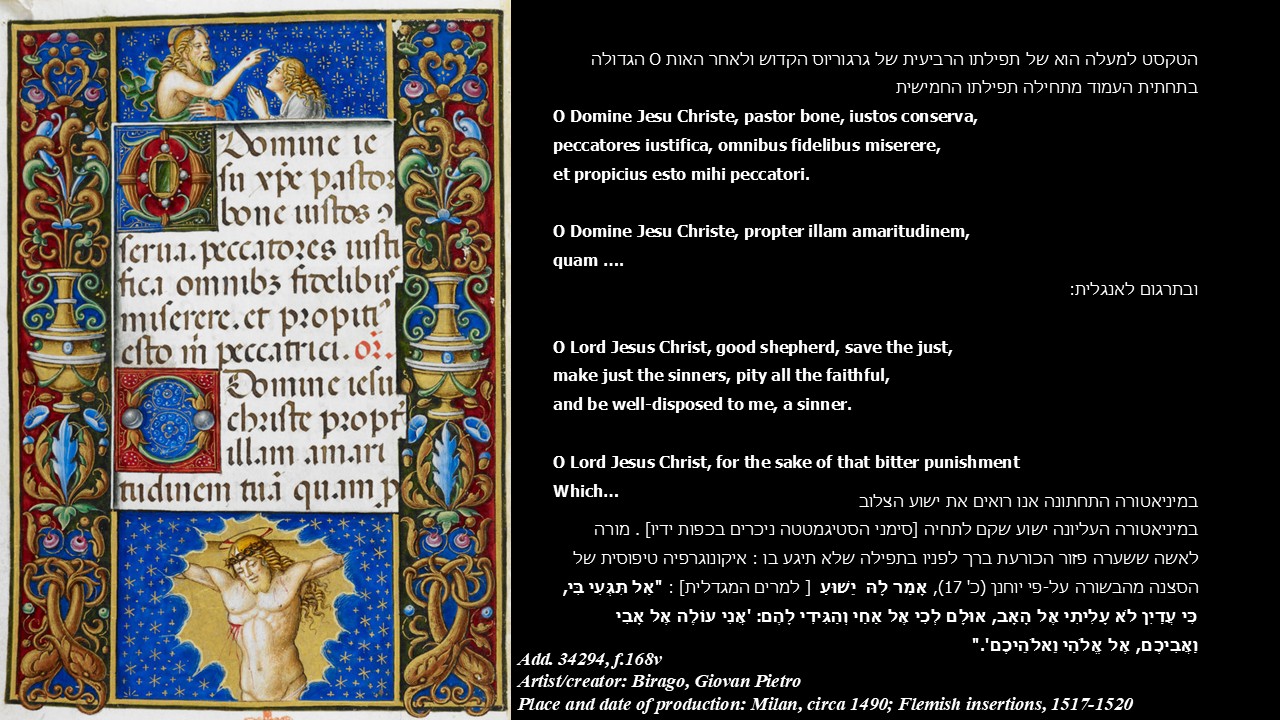 O Domine ie
su xp̄e pastor
bone iustos ꝯ
serua. peccatores iusti
fica omnibꝫ fidelibus
miserere. et propitiꝰ
esto m̄ peccatrici. or̄.
O Domine iesu
christe propt̄
illam amari
tudinem tuā quam p
הטקסט למעלה הוא של תפילתו הרביעית של גרגוריוס הקדוש ולאחר האות O הגדולה
בתחתית העמוד מתחילה תפילתו החמישית
O Domine Jesu Christe, pastor bone, iustos conserva,
peccatores iustifica, omnibus fidelibus miserere,
et propicius esto mihi peccatori.
O Domine Jesu Christe, propter illam amaritudinem,
quam ….
ובתרגום לאנגלית:
O Lord Jesus Christ, good shepherd, save the just,
make just the sinners, pity all the faithful,
and be well-disposed to me, a sinner.
O Lord Jesus Christ, for the sake of that bitter punishment
Which…
במיניאטורה התחתונה אנו רואים את ישוע הצלוב
במיניאטורה העליונה ישוע שקם לתחיה [סימני הסטיגמטטה ניכרים בכפות ידיו] . מורה
לאשה ששערה פזור הכורעת ברך לפניו בתפילה שלא תיגע בו : איקונוגרפיה טיפוסית של
הסצנה מהבשורה על-פי יוחנן (כ' 17), אָמַר לָהּ יֵשׁוּעַ [ למרים המגדלית] : "אַל תִּגְּעִי בִּי,
כִּי עֲדַיִן לֹא עָלִיתִי אֶל הָאָב, אוּלָם לְכִי אֶל אַחַי וְהַגִּידִי לָהֶם: 'אֲנִי עוֹלֶה אֶל אָבִי
וַאֲבִיכֶם, אֶל אֱלֹהַי וֵאלֹהֵיכֶם'."
Add. 34294, f.168v
Artist/creator: Birago, Giovan Pietro
Place and date of production: Milan, circa 1490; Flemish insertions, 1517-1520